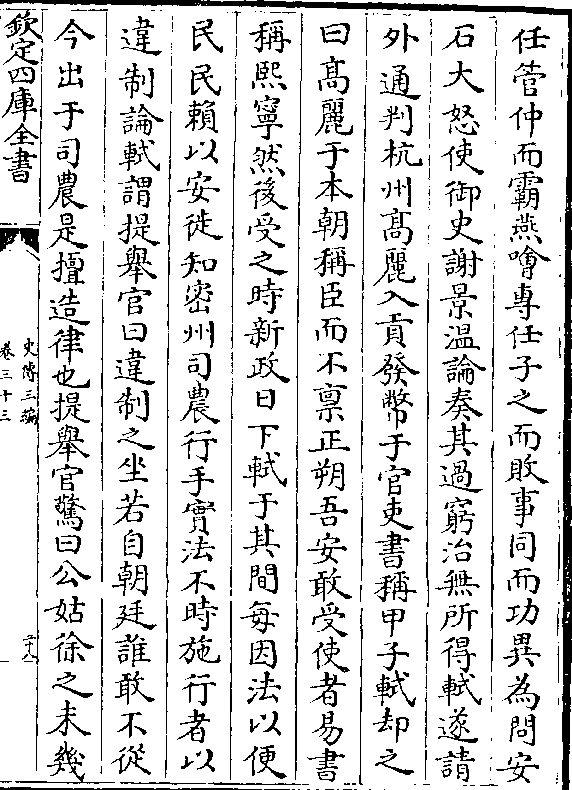 任管仲而霸燕噲專任子之而敗事同而功異為問安
石大怒使御史謝景溫論奏其過窮治無所得軾遂請
外通判杭州髙麗入貢發幣于官吏書稱甲子軾却之
曰髙麗于本朝稱臣而不禀正朔吾安敢受使者易書
稱熙寧然後受之時新政日下軾于其間每因法以便
民民賴以安徙知密州司農行手實法不時施行者以
違制論軾謂提舉官曰違制之坐若自朝廷誰敢不從
今出于司農是擅造律也提舉官驚曰公姑徐之未幾
欽定四庫全書
史傳三編
卷三十三